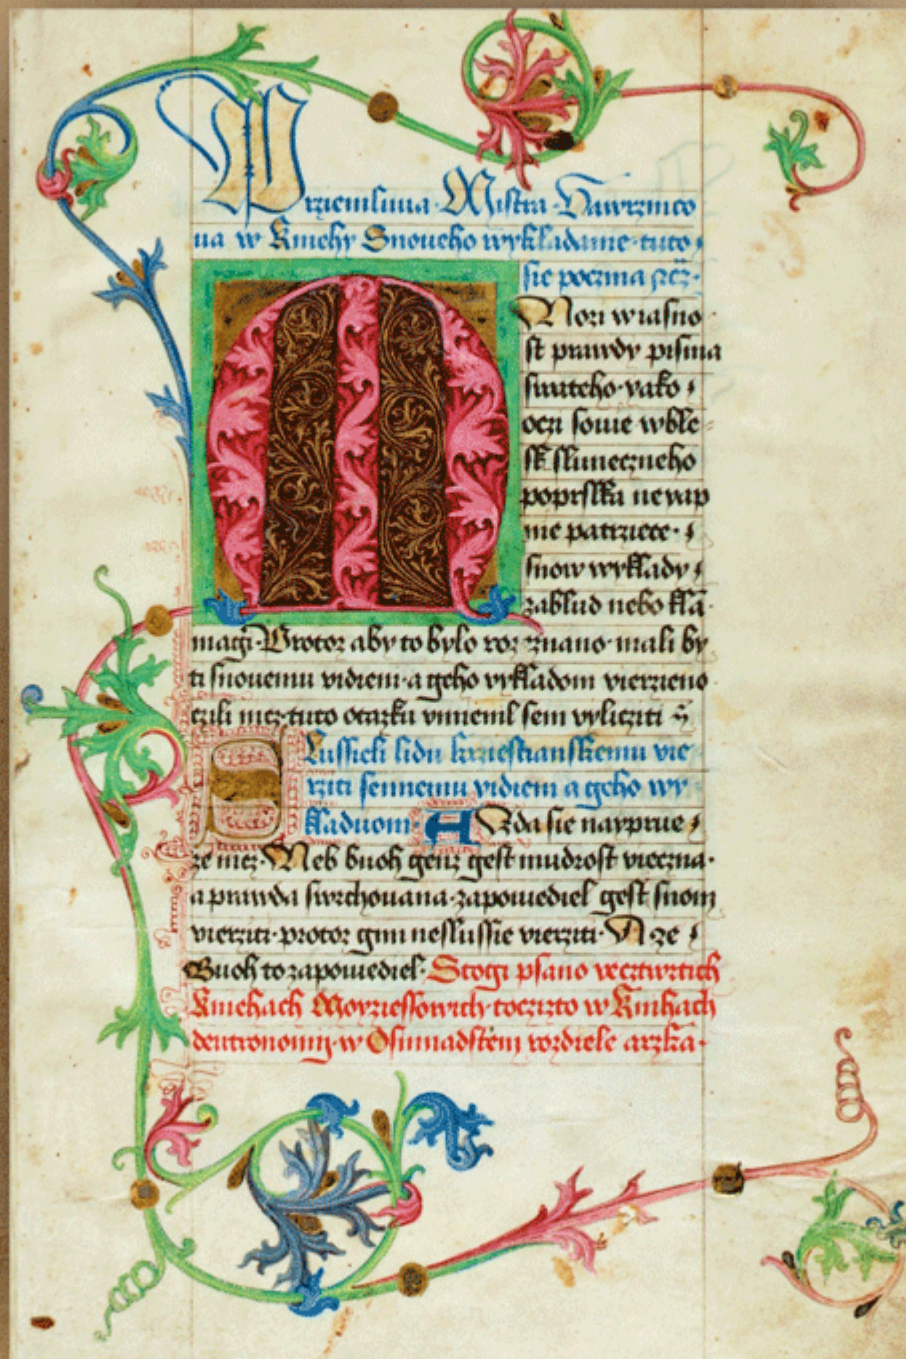 Prziemluua Mistra Vawrzincо
ua w Kniehy Snoueho wykladanie tuto
sie poczina rzecz
Mozi w iasno
st prawdy pisma
swateho yako
oczi sowie w ble
sk sluneczneho
poprslku
nie patrziece
snow wyklady
zablud nebo kla
macz Protoz aby to bylo roz znano mali by
ti snouemu vidiem a geho vykladom vierzieno
czili nicz tuto otazku vmieml sem vylicziti
Slussieli lidu krziestianskemu vie
rziti sennemu vidiem a geho wy
kladuom A Zda sie nayprue
ze nicz Neb buoh genz gest mudrost vieczna
a prawda swrchouana zapouiediel gest snom
vierziti protoz gim neslussie vierziti A ze
Buoh to zapouiediel Stogi psano we cztwrtich
Kniehach Moyziessowich toczizto w Knihach
deutronomy w Osmnadstem rozdiele